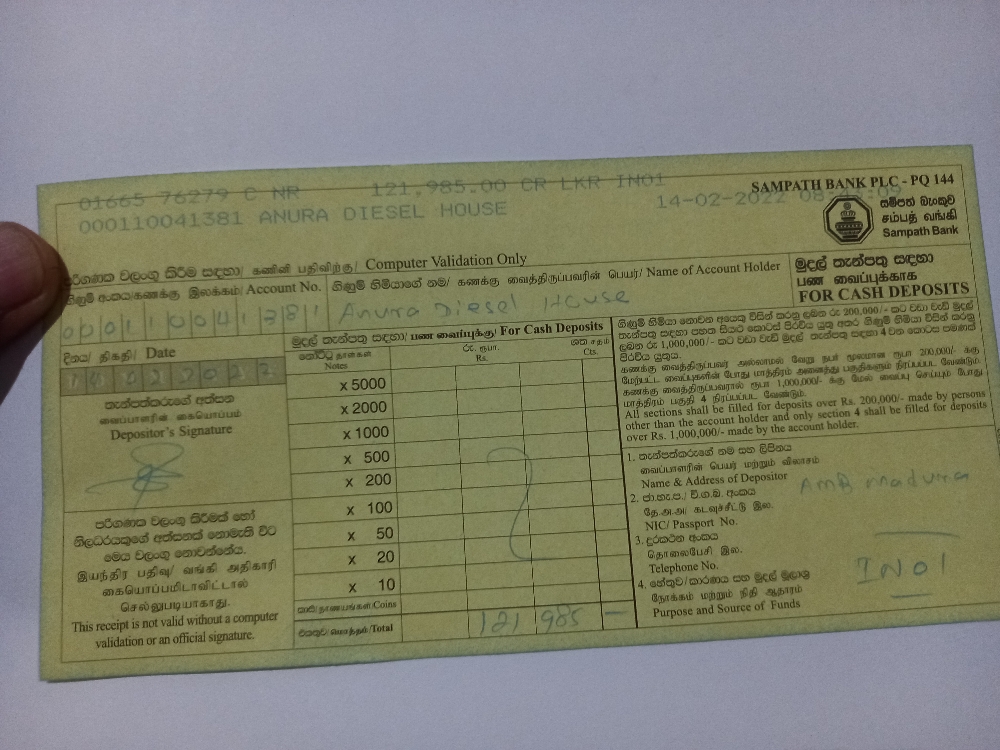 01665 76279 C NR 121,985.00 CR LKR IN01
SAMPATH BANK PLC - PQ 144
000110041381 ANURA DIESEL HOUSE
14-02-2022
සම්පත් බැංකුව
சம்பத் வங்கி
Sampath Bank
පරිගණක වලංගු කිරීම සඳහා/ கணினி பதிவிற்கு/ Computer Validation Only
ගිණුම් අංකය/கணக்கு இலக்கம்/ Account No.
ගිණුම් හිමියාගේ නම/ கணக்கு வைத்திருப்பவரின் பெயர்/ Name of Account Holder
000110041381
Anura Diesel House
මුදල් තැන්පතු සඳහා
பண வைப்புக்காக
FOR CASH DEPOSITS
දිනය/ திகதி/ Date
තැන්පත්කරුගේ අත්සන
வைப்பாளரின் கையொப்பம்
Depositor's Signature
පරිගණක වලංගු කිරීමක් හෝ
නිලධරයකුගේ අත්සනක් නොමැති විට
මෙය වලංගු නොවන්නේය.
இயந்திர பதிவு/ வங்கி அதிகாரி
கையொப்பமிடாவிட்டால்
செல்லுபடியாகாது.
This receipt is not valid without a computer
validation or an official signature.
මුදල් තැන්පතු සඳහා/ பண வைப்புக்கு/ For Cash Deposits
නෝට්ටු தாள்கள்
Notes
රු. ரூபா.
Rs.
ශත சதம்
Cts.
x 5000
x 2000
x 1000
x 500
x 200
x 100
x 50
x 20
x 10
කාසි/நாணயங்கள்/Coins
එකතුව/மொத்தம்/Total
121 985 —
ගිණුම් හිමියා නොවන අයෙකු විසින් කරනු ලබන රු 200,000/- කට වඩා වැඩි මුදල්
තැන්පතු සඳහා පහත සියළු කොටස් පිරවිය යුතු අතර ගිණුම් හිමියා විසින් කරනු
ලබන රු 1,000,000/- කට වඩා වැඩි මුදල් තැන්පතු සඳහා 4 වන කොටස පමණක්
පිරවිය යුතුය.
கணக்கு வைத்திருப்பவர் அல்லாமல் வேறு நபர் மூலமான ரூபா 200,000/- க்கு
மேற்பட்ட வைப்புகளின் போது மாத்திரம் அனைத்து பகுதிகளும் நிரப்பப்பட வேண்டும்
கணக்கு வைத்திருப்பவரால் ரூபா 1,000,000/- க்கு மேல் வைப்பு செய்யும் போது
மாத்திரம் பகுதி 4 நிரப்பப்பட வேண்டும்.
All sections shall be filled for deposits over Rs. 200,000/- made by persons
other than the account holder and only section 4 shall be filled for deposits
over Rs. 1,000,000/- made by the account holder.
1. තැන්පත්කරුගේ නම සහ ලිපිනය
வைப்பாளரின் பெயர் மற்றும் விலாசம்
Name & Address of Depositor
AMB
2. ජා.හැ.ප./ වි.ග.බ. අංකය
தே.அ.அ/ கடவுச்சீட்டு இல.
NIC/ Passport No.
3. දුරකථන අංකය
தொலைபேசி இல.
Telephone No.
4. හේතුව/කාරණය සහ මුදල් මූලාශ්‍ර
நோக்கம் மற்றும் நிதி ஆதாரம்
Purpose and Source of Funds
IN01